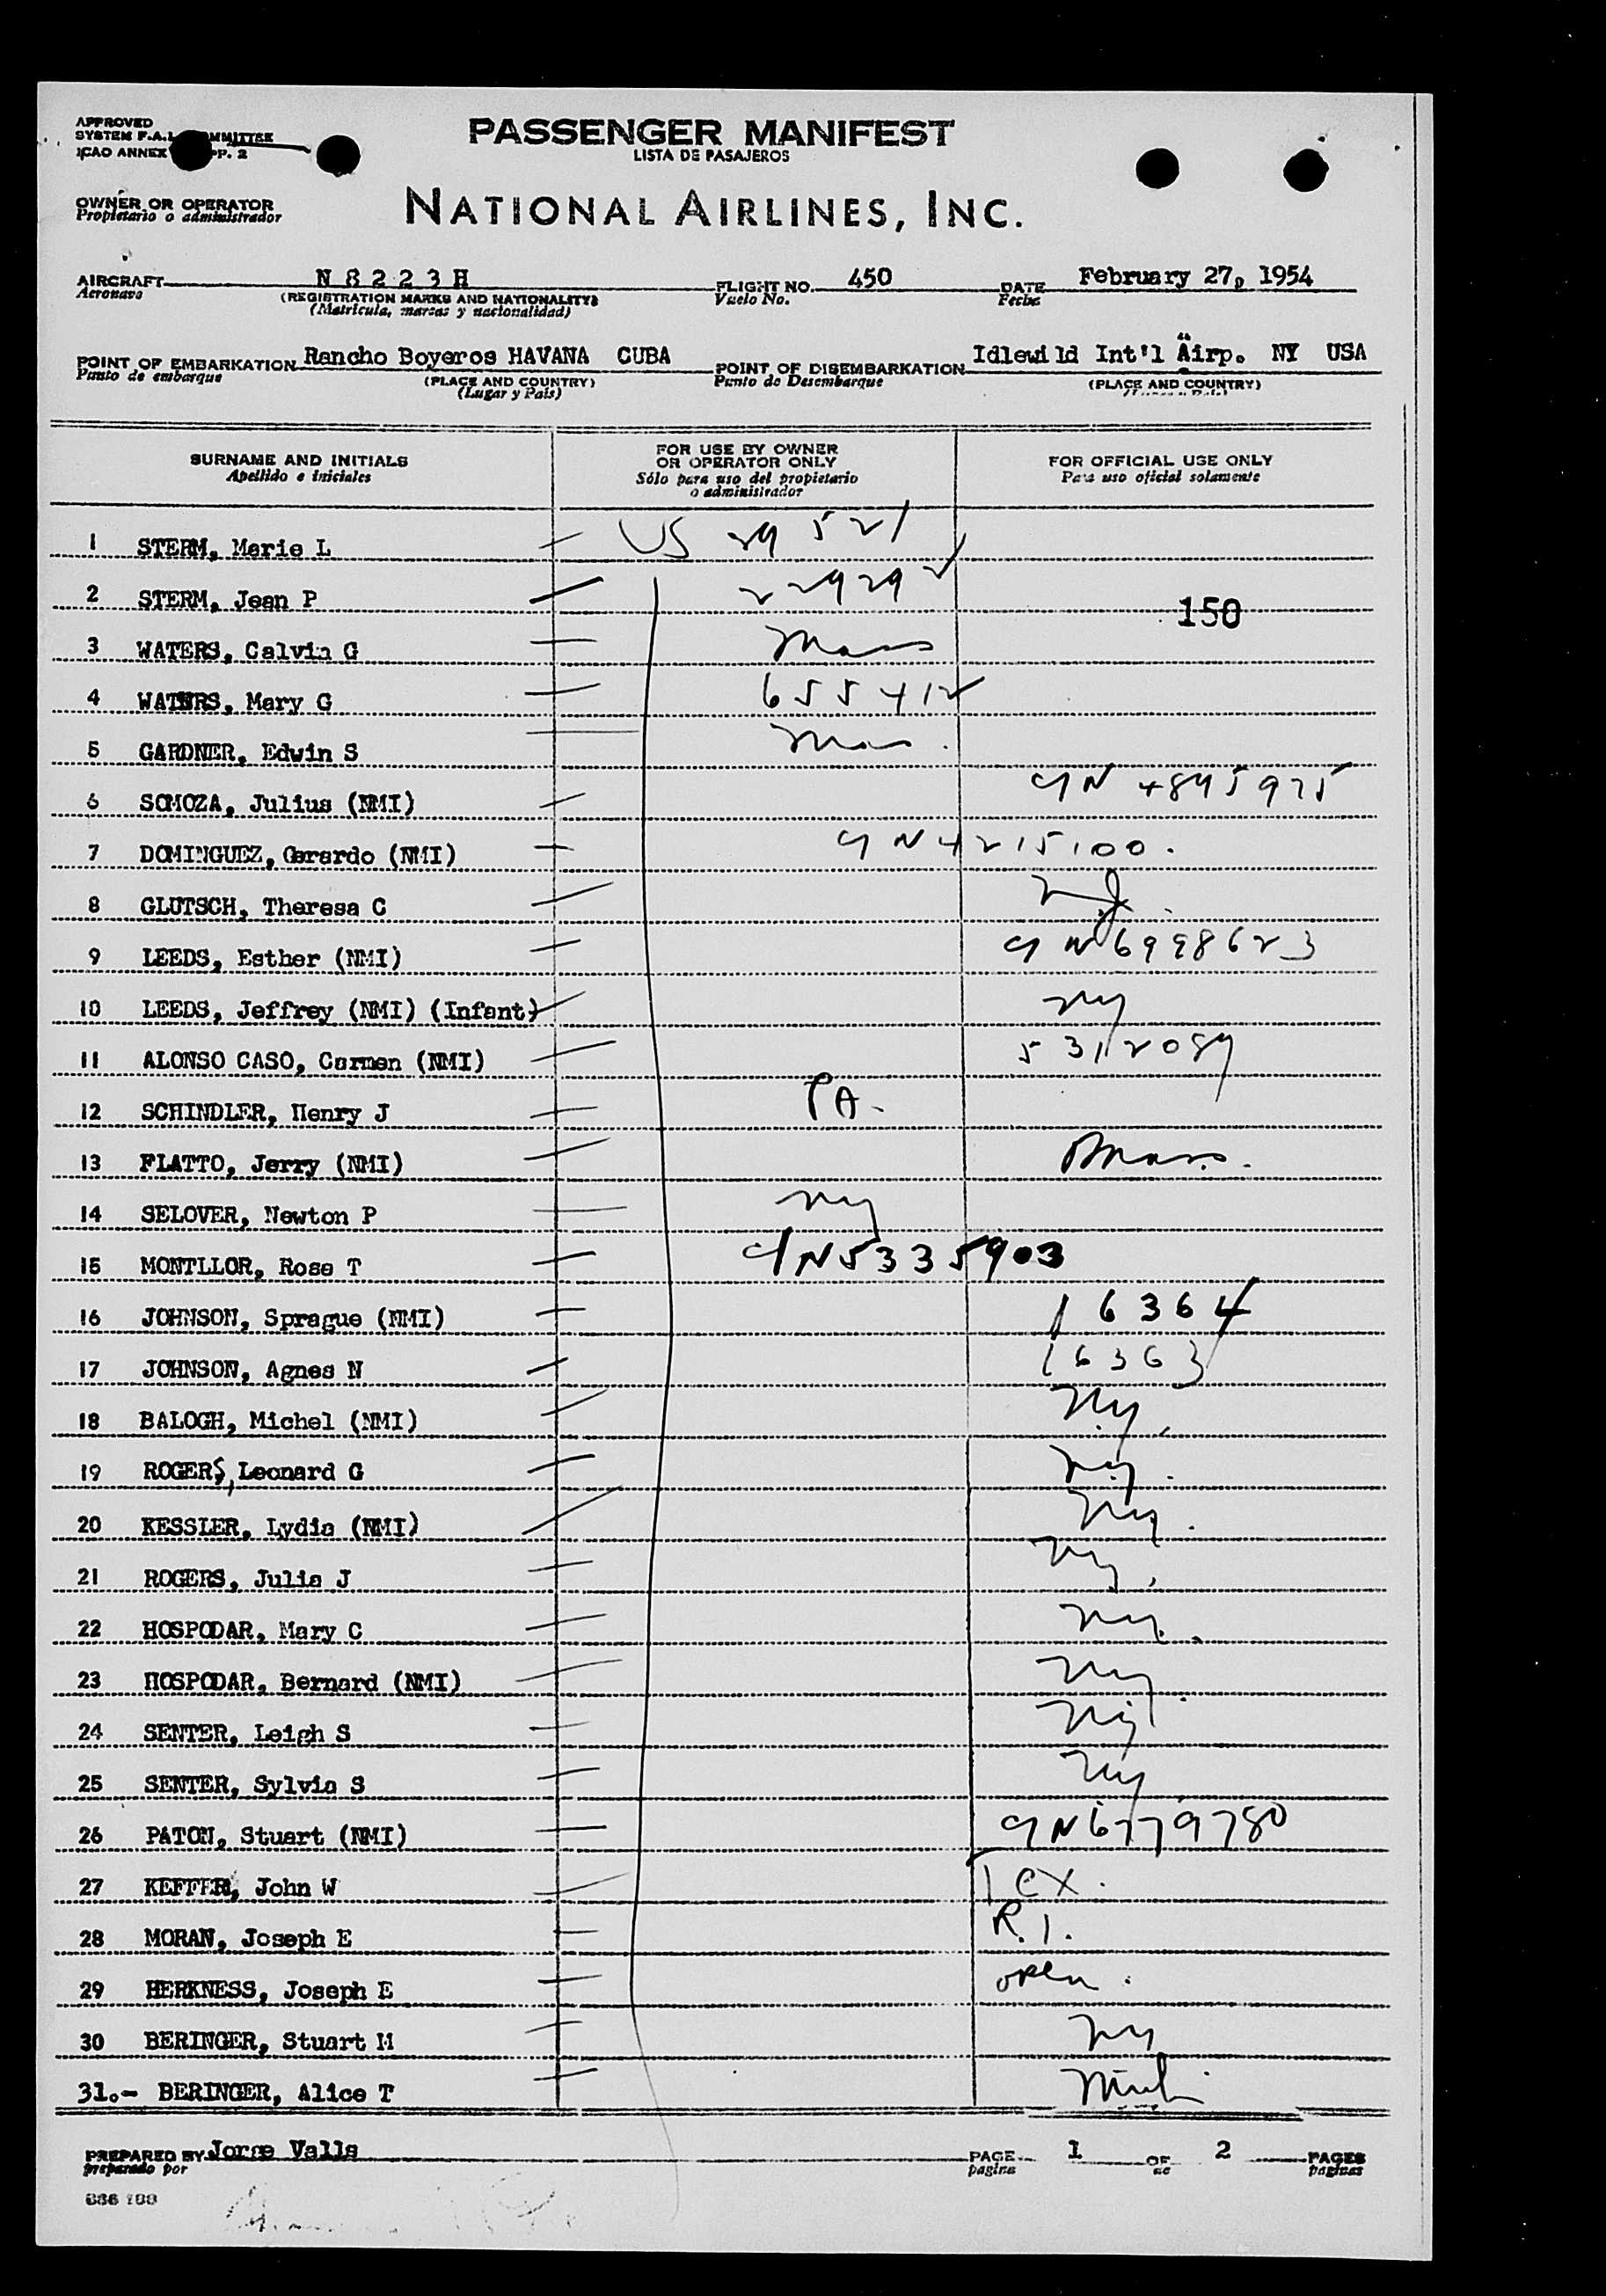 APPROVED
SYSTEM F.A.L. COMMITTEE
ICAO ANNEX PP. 2
PASSENGER MANIFEST
LISTA DE PASAJEROS
OWNER OR OPERATOR
Propietario o administrador
NATIONAL AIRLINES, INC.
AIRCRAFT N 8 2 2 3 H FLIGHT NO. 450 DATE February 27, 1954
Aeronave (REGISTRATION MARKS AND NATIONALITY) Vuelo No. Fecha
(Matrícula, marcas y nacionalidad)
POINT OF EMBARKATION Rancho Boyeros HAVANA CUBA POINT OF DISEMBARKATION Idlewild Int'l Airp. NY USA
Punto de embarque (PLACE AND COUNTRY) Punto de Desembarque (PLACE AND COUNTRY)
(Lugar y País)
SURNAME AND INITIALS FOR USE BY OWNER OR OPERATOR ONLY FOR OFFICIAL USE ONLY
Apellido e iniciales Sólo para uso del propietario o administrador Para uso oficial solamente
1 STERM, Marie L US 29521
2 STERM, Jean P 229292 150
3 WATERS, Calvin G Mass
4 WATERS, Mary G 655412
5 GARDNER, Edwin S Mas.
6 SOMOZA, Julius (NMI) CN 4895975
7 DOMINGUEZ, Gerardo (NMI) CN4215100.
8 GLUTSCH, Theresa C NJ.
9 LEEDS, Esther (NMI) CN6998623
10 LEEDS, Jeffrey (NMI) (Infant) NY
11 ALONSO CASO, Carmen (NMI) 5312089
12 SCHINDLER, Henry J PA.
13 FLATTO, Jerry (NMI) Mass.
14 SELOVER, Newton P NY
15 MONTLLOR, Rose T CN5335903
16 JOHNSON, Sprague (NMI) 16364
17 JOHNSON, Agnes N 16363
18 BALOGH, Michel (NMI) N.Y.
19 ROGERS, Leonard G N.Y.
20 KESSLER, Lydia (NMI) NY.
21 ROGERS, Julia J NY.
22 HOSPODAR, Mary C NY.
23 HOSPODAR, Bernard (NMI) NY.
24 SENTER, Leigh S NY
25 SENTER, Sylvia S NY
26 PATON, Stuart (NMI) CN6779780
27 KEFFER, John W Tex.
28 MORAN, Joseph E R.I.
29 HERKNESS, Joseph E open.
30 BERINGER, Stuart M NY
31.- BERINGER, Alice T Mich
PREPARED BY Jorge Valls PAGE 1 OF 2 PAGES
preparado por pagina de paginas